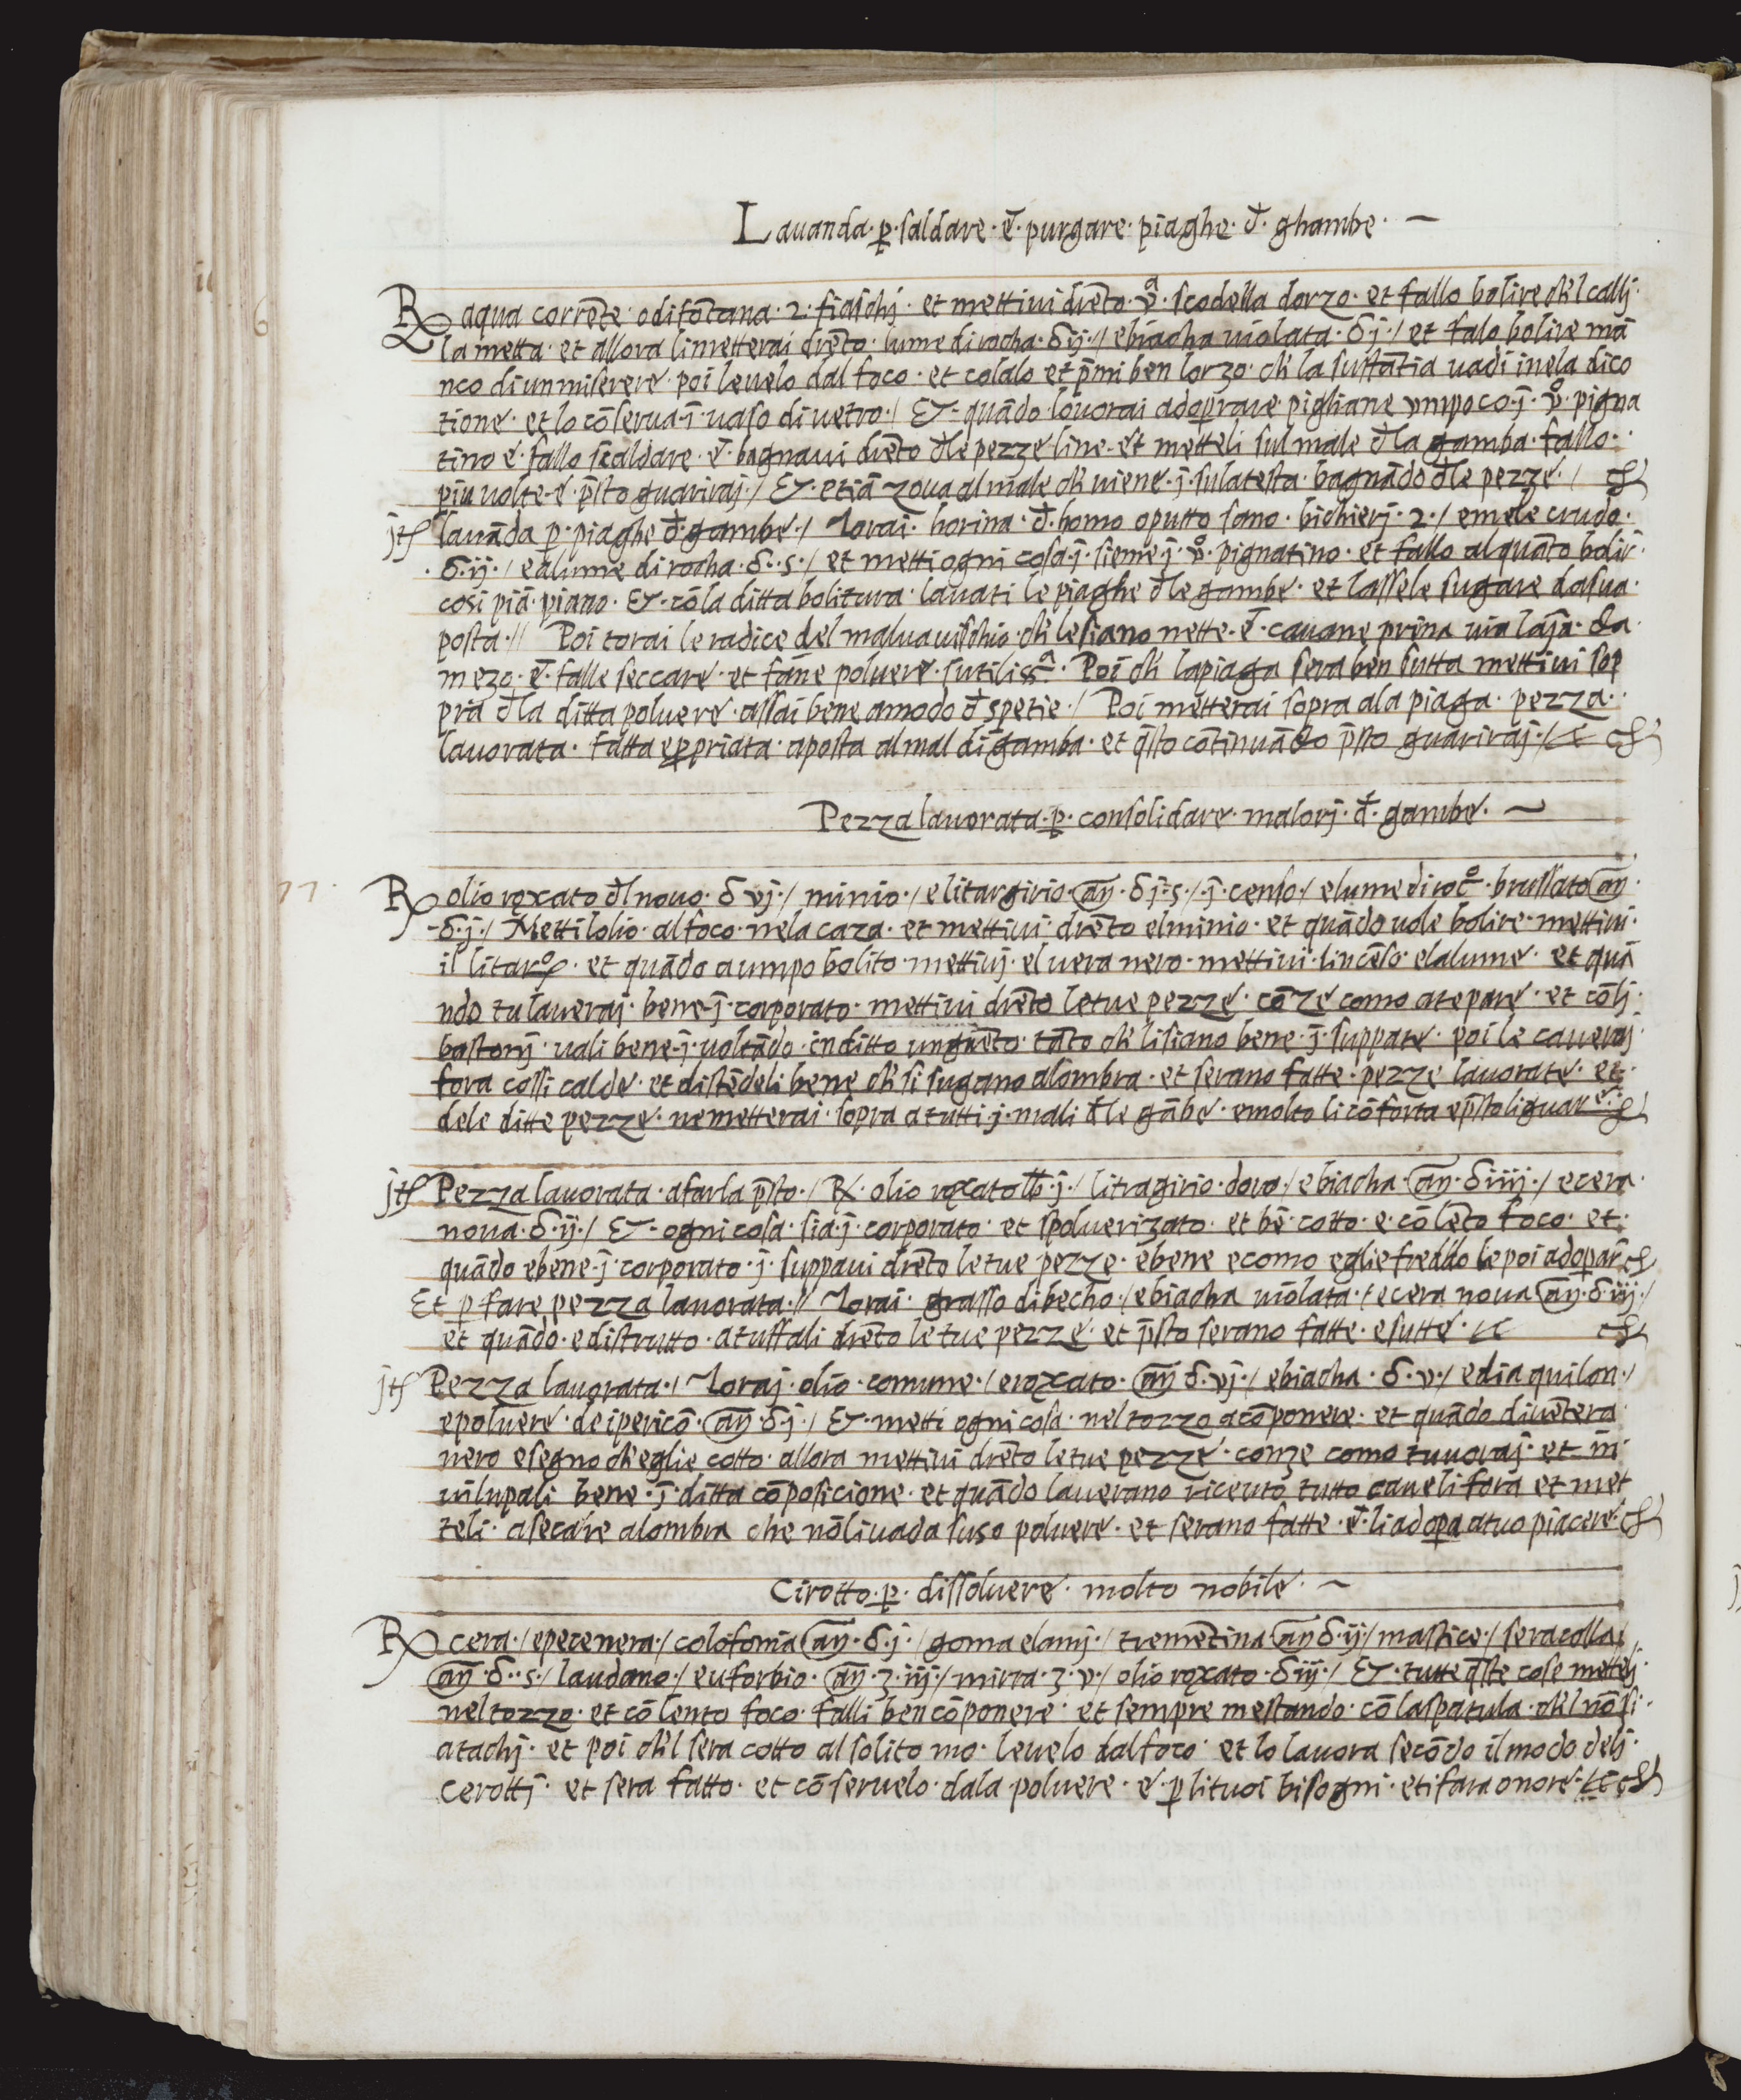 Lauanda · p̱ · saldare · ē · purgare · piaghe · đ · ghambe · ~
6 ℞ aqua corrēte · o di fōtana · 2 · fiaschj · et mettiui drēto · vᵃ · scodella dorzo · et fallo bolire ch'l callj ·
la metta · et allora li metterai drēto · lume di rocha · δ ij · / e biacha uiolata · δ j · / et falo bolire mā
nco di un miserere · poi leuelo dal foco · et colalo et p̄mi ben lorzo · ch' la sustātia uadi in ela dico
tione · et lo cōserua · ī · uaso di uetro · / Et · quādo lo vorai adoprare pigliane vn poco · ī · vº · pigna
tino e · fallo scaldare · e · bagnaui drēto đle pezze line · et metteli sul male đla gamba · fallo ·
piu uolte · e · p̄sto guariraj · / Et · etiā zoua al male ch' uiene · ī · su la testa · bagnādo đle pezze · /
jtſ lauāda p̱ · piaghe đ · gambe · / Torai · horina · đ · homo o putto sano · bichierj · 2 · / e mele crudo ·
· δ · ij · / e alume di rocha · δ · s · / et metti ogni cosa · ī · sieme · ī · vº · pignatino · et fallo alquāto bolir̄ ·
cosi piā · piano · Et · cō la ditta bolitura · lauati le piaghe đle gambe · et lassele sugare da sua ·
posta · // Poi torai le radice del maluauischio · ch' le siano nette · ē · cauane prīna uia lanīa · da
mezo · ē · falle seccare · et fāne poluere · sutilissᵃ · Poi ch' la piaga sera ben sutta mettiui sop
pra đla ditta poluere · assai bene a modo đ spetie · / Poi metterai sopra ala piaga · pezza ·
lauorata · fatta e p̱priata · a posta al mal di gamba · et q̄sto cōtinuādo p̄sto guariraj · /
Pezza lauorata · p̱ · consolidare · malorj · đ · gambe · ~
77 · ℞ olio roxato đl nouo · δ vj · / minio · / e litargirio · an̄ · δ j · s · / · ī · censo / e lume di rocº · brussato an̄ ·
· δ · j · / Metti lolio · al foco · ne la caza · et mettiui · drēto el minio · et quādo uole bolire · mettiui ·
il litarº · et quādo a un po bolito · mettiuj · el uera nero · mettiui · lincēso · e lalume · et quā
ndo tu laueraj · bene · ī · corporato · mettiui drēto le tue pezze · cōze como a te pare · et cō lj ·
bastonj · uali bene · ī · uoltādo · in ditto unguēto · tāto ch' li siano bene · ī · suppate · poi le caueraj
fora cossi calde · et distēdeli bene ch' si sugano a lombra · et serano fatte · pezze lauorate · et ·
dele ditte pezze · ne metterai · sopra a tutti j · mali đle gābe · e molto li cōforta e p̄sto li guar
jtſ Pezza lauorata · a farla p̄sto · / ℞ · olio roxato lb · j · / litragirio · doro / e biacha · an̄ · δ iiij · / e cera ·
noua · δ · ij · / Et · ogni cosa · sia · ī · corporato · et spoluerizato · et bē · cotto · e · cō lēto foco · et ·
quādo e bene · ī · corporato · ī · suppaui drēto le tue pezze · e bene e como eglie freddo le poi adopar̄
Et p̱ fare pezza lauorata · // Torai · grasso di becho · / e biacha uiolata · / e cera noua an̄ · δ · iij · /
et quādo · e distrutto · a tuffali drēto le tue pezze · et p̄sto serano fatte · e sutte ·
jtſ Pezza lauorata · / Toraj · olio · comune · / e roxato · an̄ δ · vj · / e biacha · δ · v · / e dia quilon · /
e poluere · de ipericō · an̄ δ · j · / Et · metti ogni cosa · nel tozzo a cōponere · et quādo diuētera
nero e segno ch' eglie cotto · allora mettiui drēto le tue pezze · conze como tu uoraj · et · in̄
uilupali bene · ī · ditta cōposicione · et quādo lauerano riceuto tutto caueli fora et met
teli · a secare a lombra che nō li uada suso poluere · et serano fatte · ē · li adop̱a a tuo piacere ·
Cirotto · p̱ · dissoluere · molto nobile · ~
℞ cera · / e pece nera · / colofonia an̄ · δ · j · / goma elemj · / tremētina an̄ δ · ij / mastice · / seracolla /
an̄ · δ · s · / laudano · / euforbio · an̄ · ʒ · iij · / mirra · ʒ · v · / olio roxato · δ iij · / Et · tutte q̄ste cose mettej ·
nel tozzo · et cō lento foco · falli ben cōponere · et sempre mestando · cō la spatula · ch'l nō si ·
atachj · et poi ch'l sera cotto al solito mº · leuelo dal foco · et lo lauora secōdo il modo delj ·
cerottj · et sera fatto · et cō seruelo · dala poluere · e · p̱ li tuoi bisogni · e ti fara onore ·